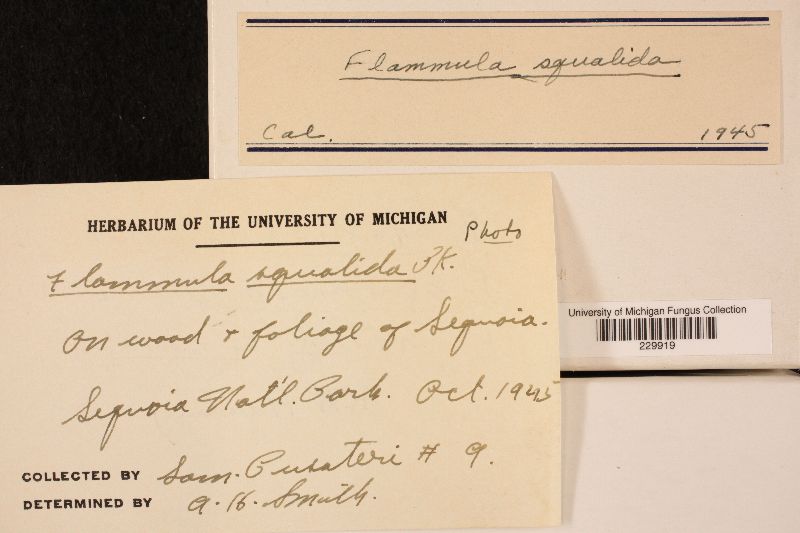 Flammula squalida
Cal. 1945
HERBARIUM OF THE UNIVERSITY OF MICHIGAN
Photo
Flammula squalida Pk.
On wood + foliage of Sequoia.
Sequoia Nat'l. Park. Oct. 1945
COLLECTED BY Sam. Pusateri # 9.
DETERMINED BY A. H. Smith.
University of Michigan Fungus Collection
229919